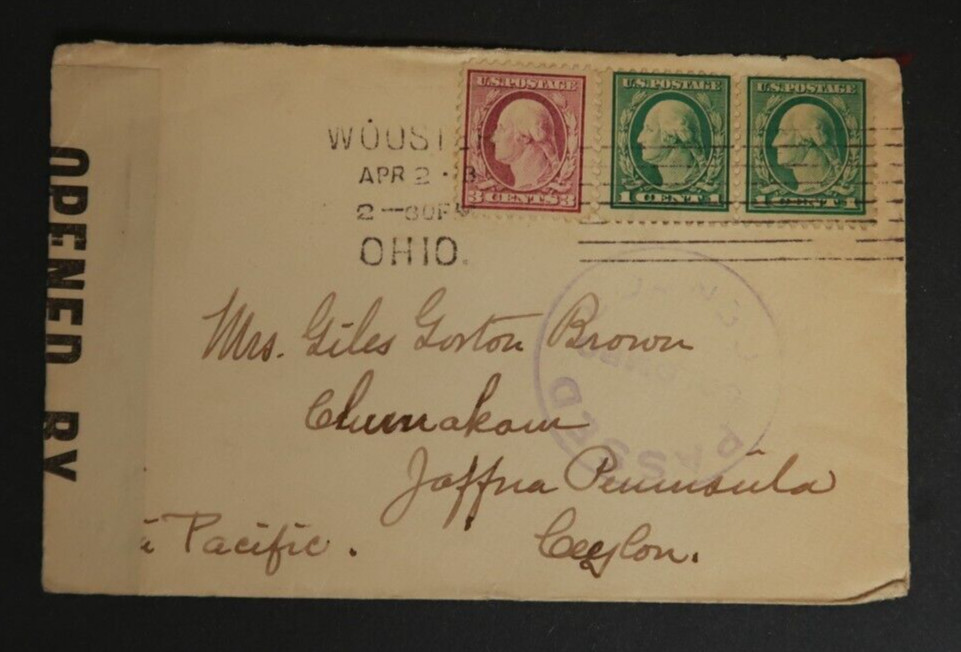 OPENED BY
U.S. POSTAGE
3 CENTS 3
U.S. POSTAGE
1 CENT 1
U.S. POSTAGE
1 CENT 1
WOOSTE
APR 2
2—30P
OHIO.
PASSED
Mrs. Giles Gorton Brown
Chunnakam
Jaffna Peninsula
Ceylon.
Pacific.